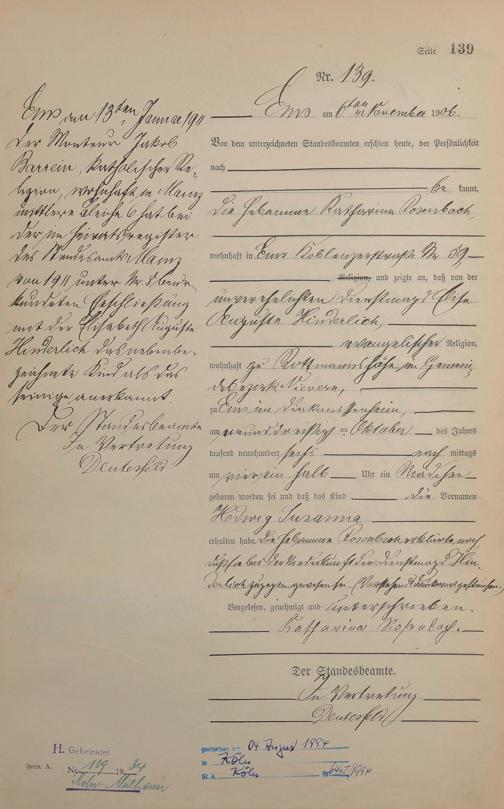 Seite 139
Nr. 139.
Ems am 6ten November 1906.
Vor dem unterzeichneten Standesbeamten erschien heute, der Persönlichkeit
nach
be kannt,
die Hebamme Katharina Rosenbach
wohnhaft in Ems Koblenzerstraße Nr 59
Religion, und zeigte an, daß von der
unverehelichten Dienstmagd Elise
Auguste Hinderlich,
evangelischer Religion,
wohnhaft zu in Gemein-
debezirk Nievern,
zu Ems im Diakonissenheim,
am neunundzwanzigsten Oktober des Jahres
tausend neunhundert sechs nach mittags
um vier ein halb Uhr ein Mädchen
geboren worden sei und daß das Kind die Vornamen
Hedwig Susanna
erhalten habe. Die Hebamme Rosenbach erklärte noch
daß sie bei der Niederkunft der Dienstmagd Hin-
derlich zugegen gewesen sei.
Vorgelesen, genehmigt und unterschrieben.
Katharina Rosenbach.
Der Standesbeamte.
In Vertretung
Ems am 13ten Januar 1911
Der Monteur Jakob
Barrein, katholischer Re-
ligion, wohnhaft in Mainz
mittlere Bleiche 6 hat bei
der im Heiratsregister
des Standesamts Mainz
von 1911 unter Nr. 8 beur-
kundeten Eheschließung
mit der Elisabeth Auguste
Hinderlich das nebenbe-
zeichnete Kind als das
seinige anerkannt.
Der Standesbeamte
In Vertretung
H. Geheiratet
Nr 119 1934
Köln-Mülheim
gestorben am 04. August 1994
in Köln
St. A. Köln Nr. /1994